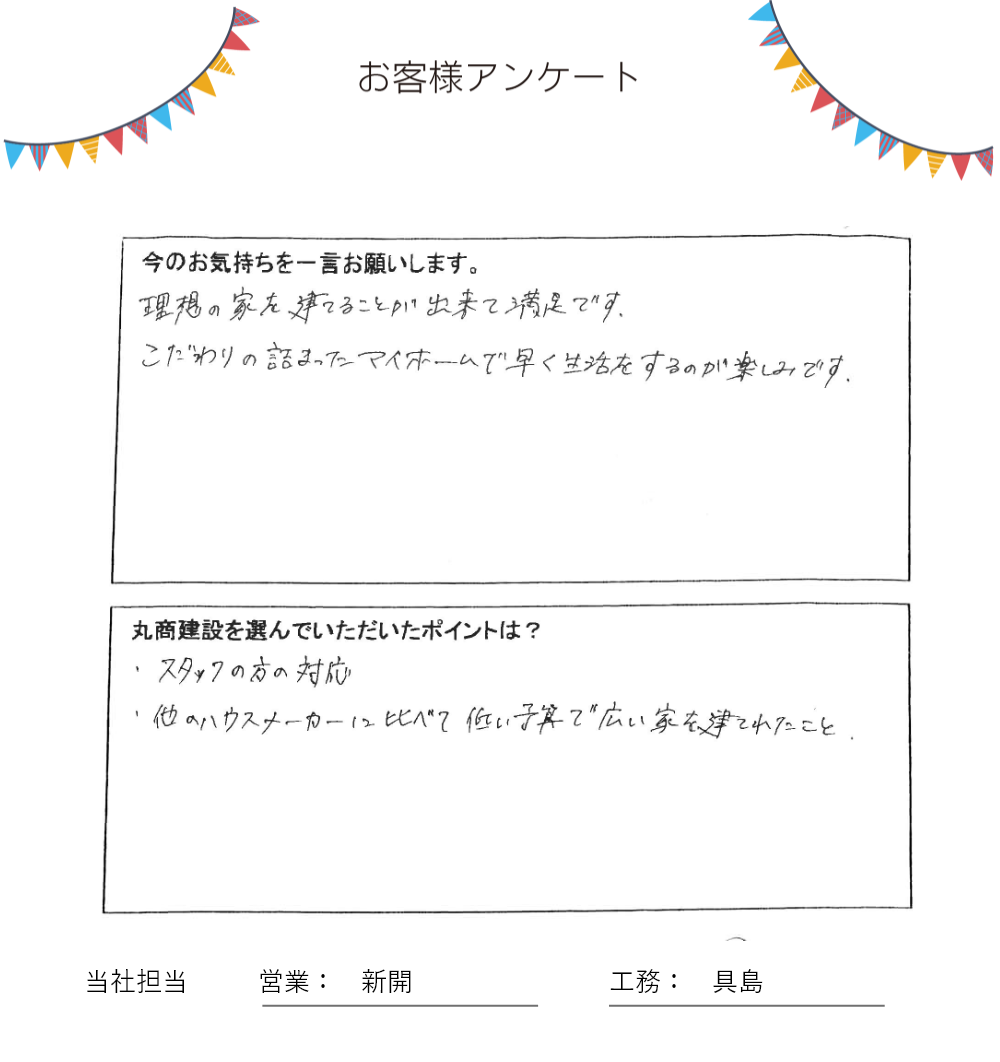 お客様アンケート
今のお気持ちを一言お願いします。
理想の家を建てることが出来て満足です.
こだわりの詰まったマイホームで早く生活をするのが楽しみです.
丸商建設を選んでいただいたポイントは？
・スタッフの方の対応
・他のハウスメーカーに比べて低い予算で広い家を建てれたこと.
当社担当 営業： 新開 工務： 具島